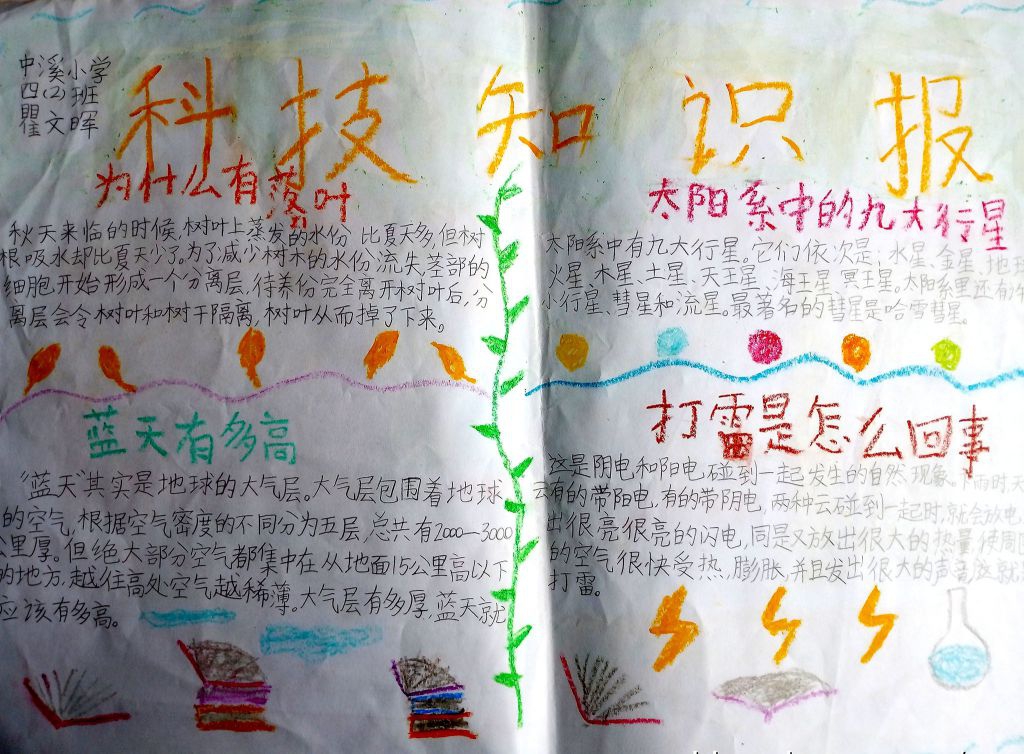 中溪小学
四(2)班
瞿文晖
科技知识报
为什么有落叶
秋天来临的时候,树叶上蒸发的水份 比夏天多,但树
根吸水却比夏天少了。为了减少树木的水份流失,茎部的
细胞开始形成一个分离层,待养份完全离开树叶后,分
离层会令树叶和树干隔离,树叶从而掉了下来。
太阳系中的九大行星
太阳系中有九大行星。它们依次是:水星、金星、地球
火星、木星、土星、天王星、海王星、冥王星。太阳系里还有许
小行星、彗星和流星。最著名的彗星是哈雪彗星。
蓝天有多高
“蓝天”其实是地球的大气层。大气层包围着地球
的空气,根据空气密度的不同分为五层,总共有2000—3000
公里厚。但绝大部分空气都集中在从地面15公里高以下
的地方,越往高处空气越稀薄。大气层有多厚,蓝天就
应该有多高。
打雷是怎么回事
这是阴电和阳电,碰到一起发生的自然现象。下雨时,天
云有的带阳电,有的带阴电,两种云碰到一起时,就会放电,
出很亮很亮的闪电,同是又放出很大的热量,使周围
的空气很快受热,膨胀,并且发出很大的声音,这就是
打雷。